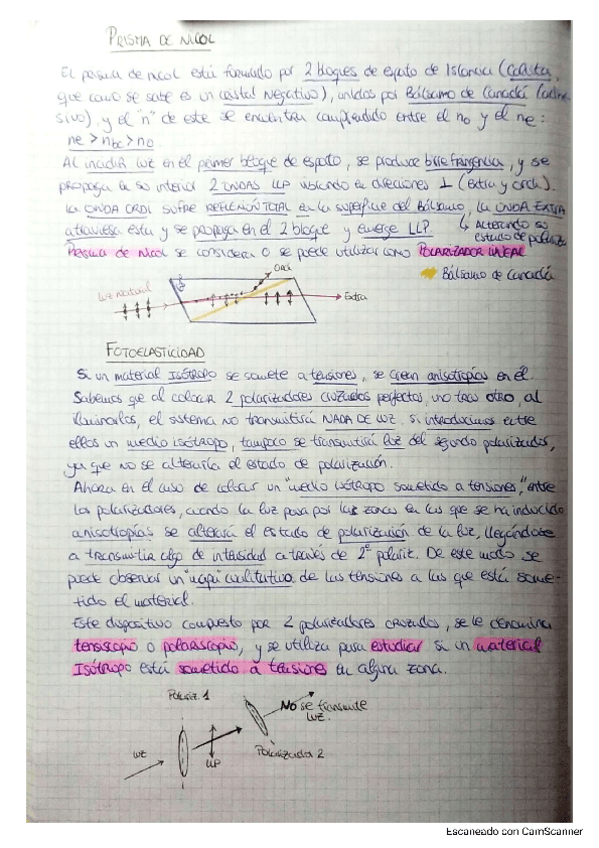 PRISMA DE NICOL
El prisma de nicol está formado por 2 bloques de espato de Islandia (Calcita,
que como se sabe es un cristal negativo), unidos por Bálsamo de Canadá (adhe-
sivo), y el "n" de este se encuentra comprendido entre el no y el ne:
ne > nbc > no
Al incidir luz en el primer bloque de espato, se produce birrefringencia, y se
propaga en su interior 2 ONDAS LLP vibrando en direcciones ⊥ (extra y ord).
La ONDA ORDI sufre REFLEXIÓN TOTAL en la superficie del Bálsamo, la ONDA EXTRA
atraviesa esta y se propaga en el 2 bloque y emerge LLP. ↳ Alterando su
estado de polariz
Prisma de Nicol se considera o se puede utilizar como POLARIZADOR LINEAL
Bálsamo de Canadá
Luz natural
Ordi
Extra
FOTOELASTICIDAD
Si un material ISÓTROPO se somete a tensiones, se crean anisotropías en él.
Sabemos que al colocar 2 polarizadores cruzados perfectos, uno tras otro, al
iluminarlos, el sistema no transmitirá NADA DE LUZ. Si introducimos entre
ellos un medio isótropo, tampoco se transmitirá luz del segundo polarizador,
ya que no se alteraría el estado de polarización.
Ahora en el caso de colocar un "medio isótropo sometido a tensiones", entre
los polarizadores, cuando la luz pasa por las zonas en las que se ha inducido
anisotropías se alterará el estado de polarización de la luz, llegándose
a transmitir algo de intensidad a través de 2º polariz. De este modo se
puede observar un "mapa" cualitativo, de las tensiones a las que está some-
tido el material.
Este dispositivo compuesto por 2 polarizadores cruzados, se le denomina
tensiscopio o polariscopio, y se utiliza para estudiar si un material
ISÓTROPO está sometido a tensiones en alguna zona.
Polariz. 1
No se transmite
LUZ.
LUZ
LLP
Polarizador 2
Escaneado con CamScanner